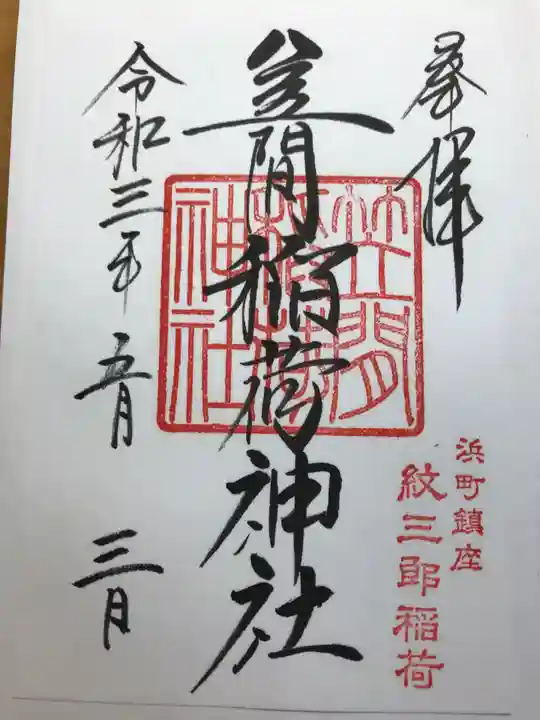 奉拝
笠間稲荷神社
笠間
稲荷
神社
浜町鎮座
紋三郎稲荷
令和三年五月三日